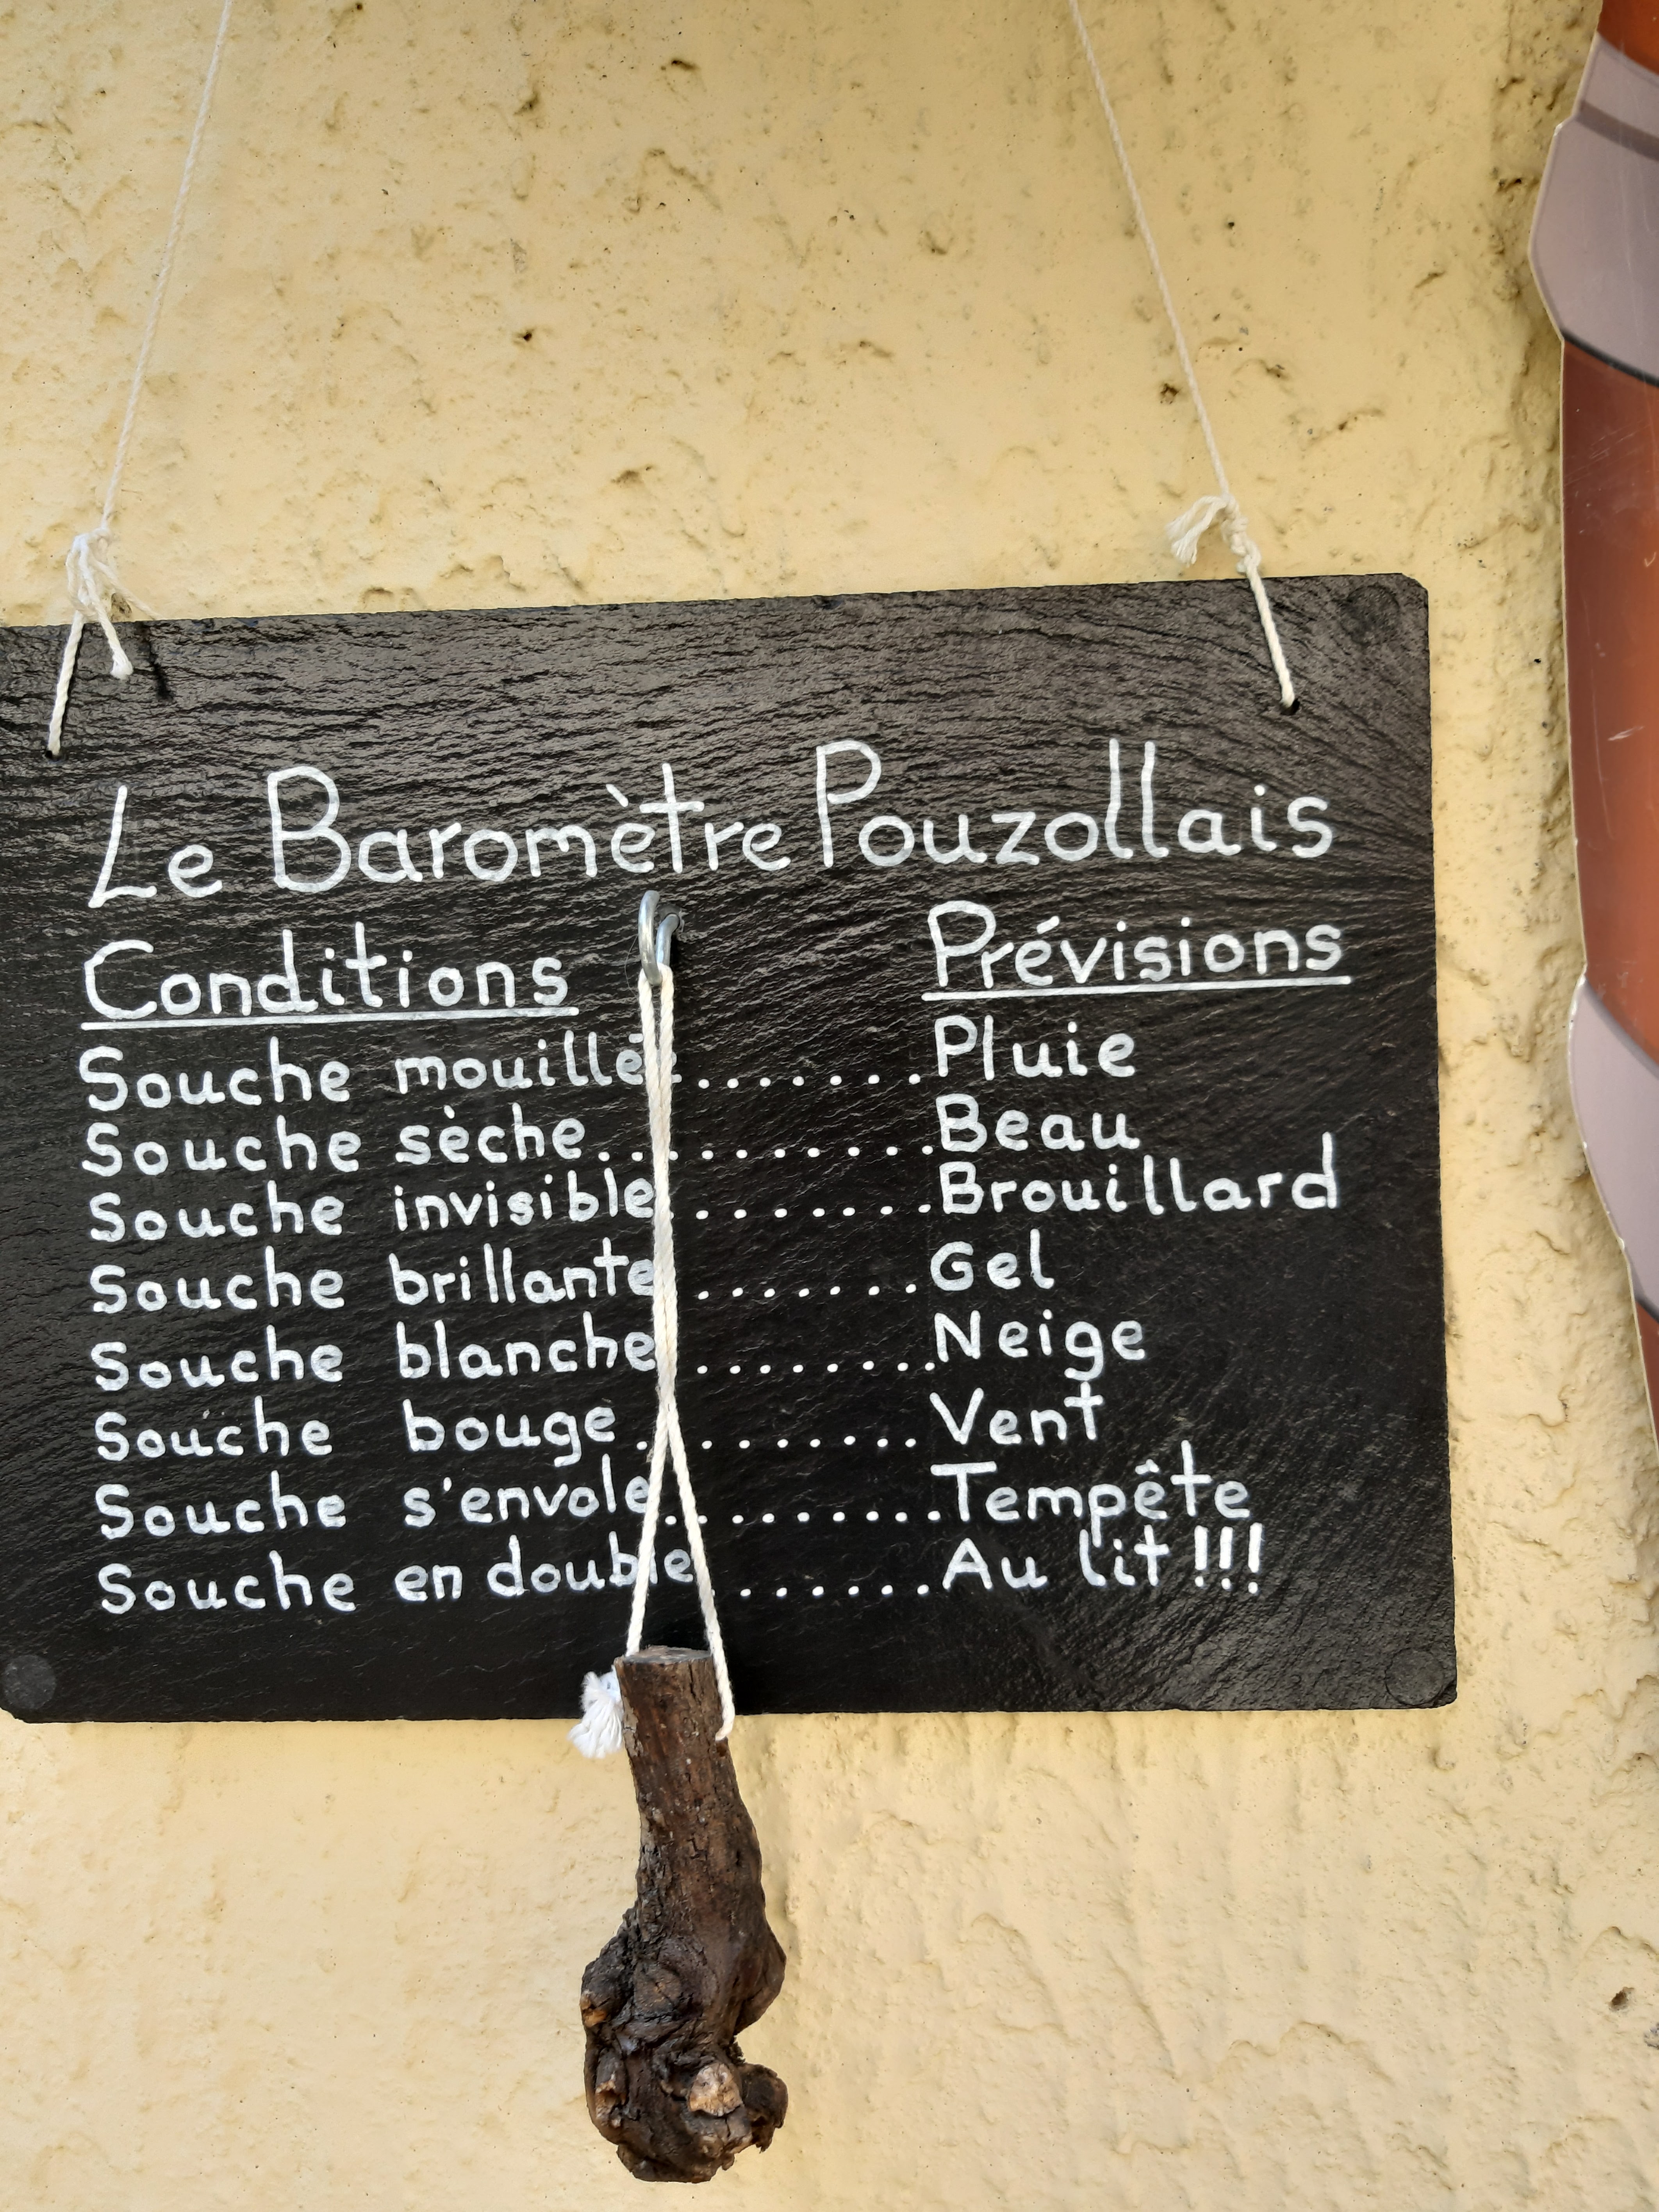 Le Baromètre Pouzollais
Conditions Prévisions
Souche mouillée........Pluie
Souche sèche...........Beau
Souche invisible........Brouillard
Souche brillante.......Gel
Souche blanche........Neige
Souche bouge.........Vent
Souche s'envole.........Tempête
Souche en double.......Au lit!!!